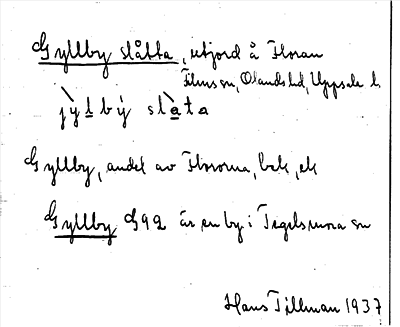 Gyllby slåtta, utjord å Floran
Films sn, Olands hd, Uppsala l.
jỳlbỳ slàta
Gyllby, andel av Flororna, bek, ek
Gyllby G92 är en by i Tegelsmora sn
Hans Tillman 1937